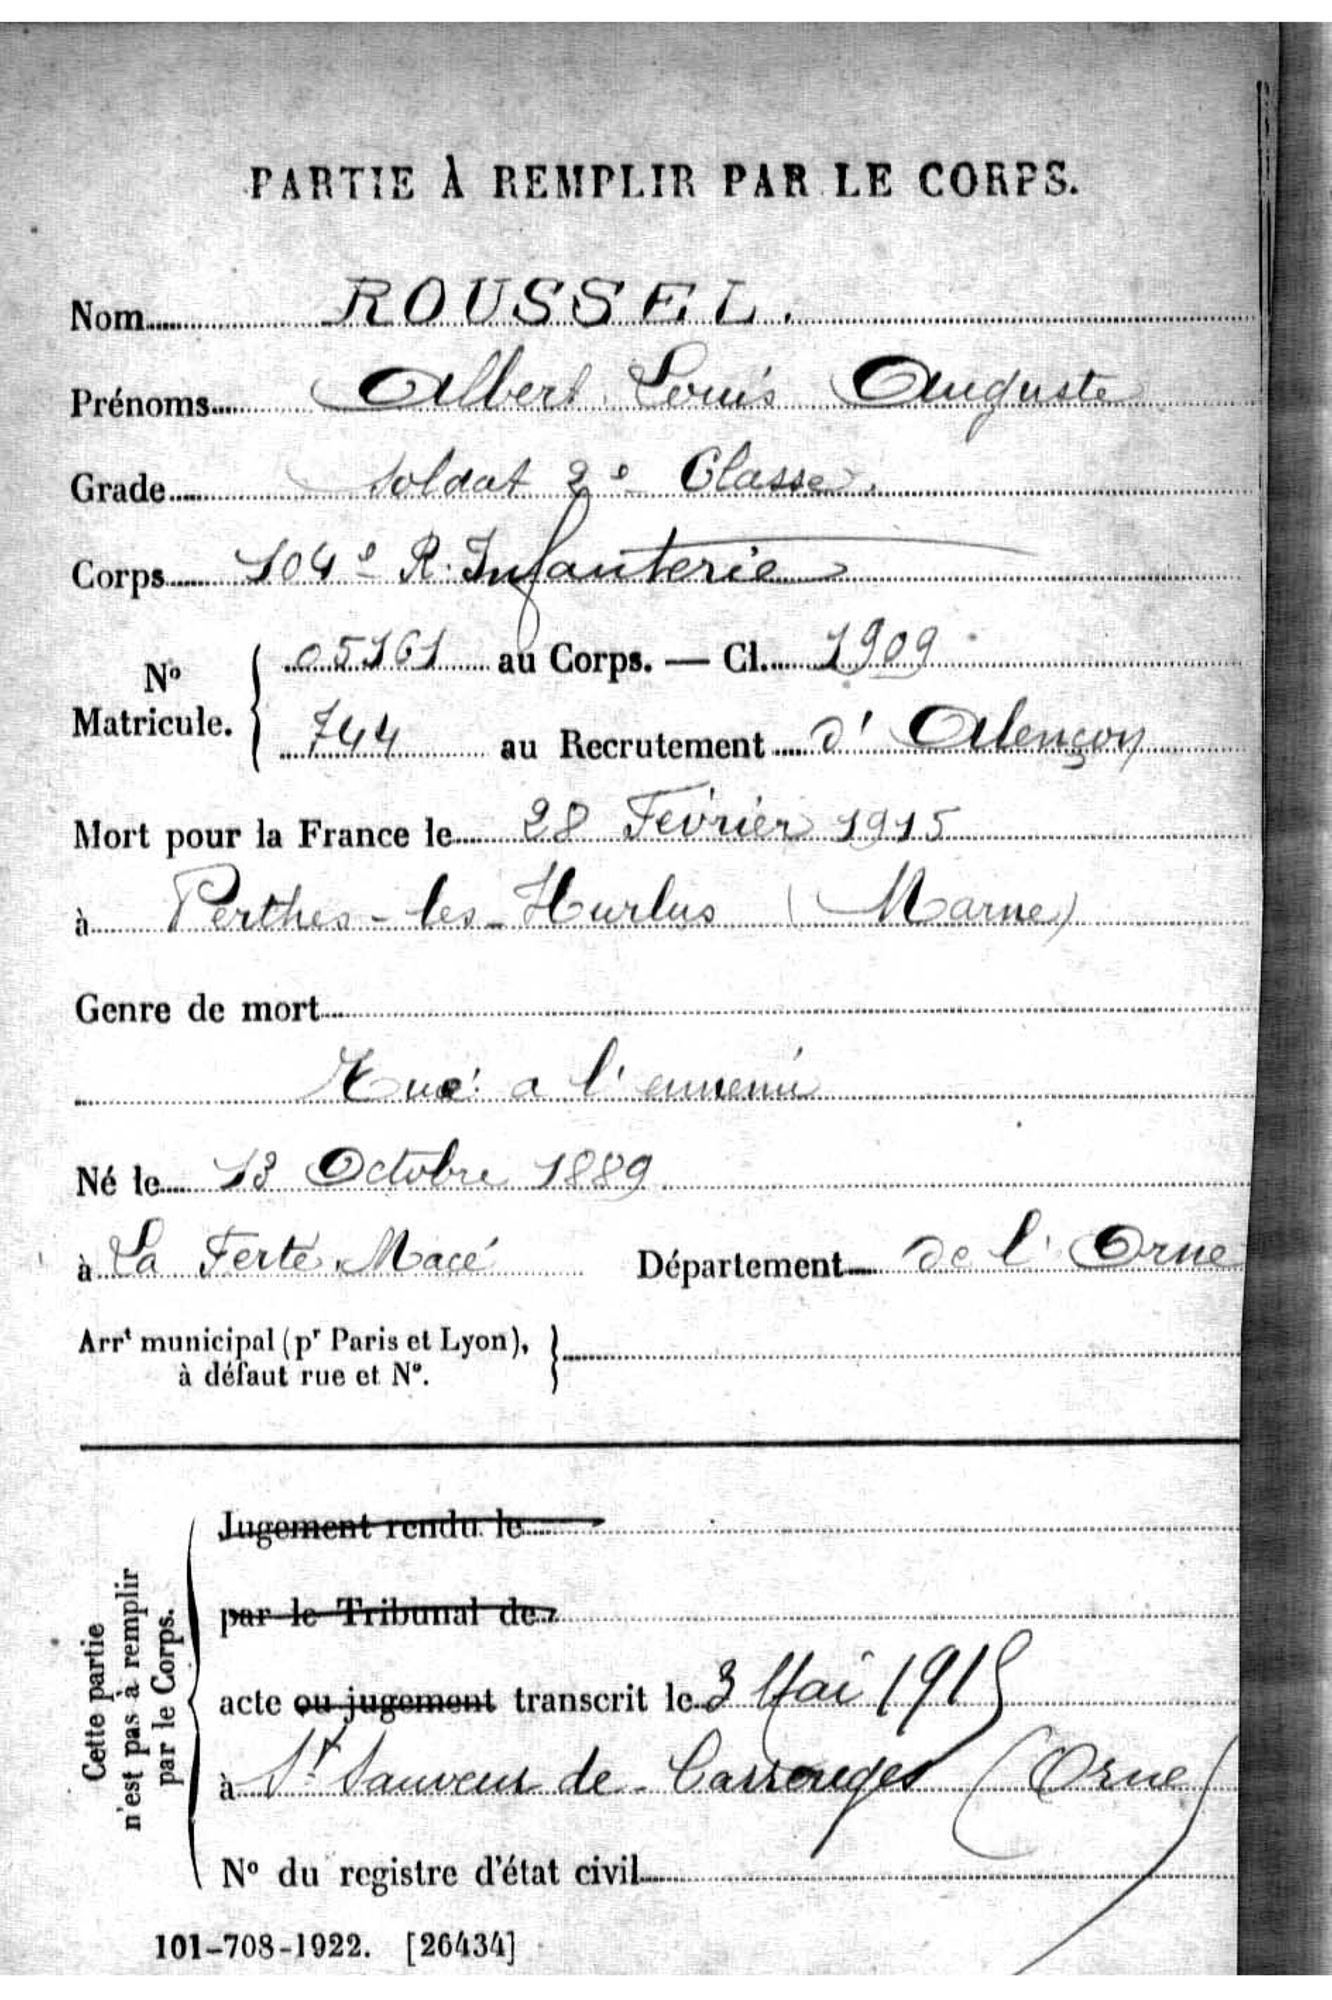 PARTIE À REMPLIR PAR LE CORPS.
Nom ROUSSEL.
Prénoms Albert Louis Auguste
Grade soldat 2e Classe.
Corps 104e R. Infanterie
No Matricule. { 05161 au Corps. — Cl. 1909
744 au Recrutement d'Alençon
Mort pour la France le 28 Février 1915
à Perthes-les-Hurlus (Marne)
Genre de mort
Tué à l'ennemi
Né le 13 Octobre 1889
à La Ferté Macé Département de l'Orne
Arrt municipal (pr Paris et Lyon), }
à défaut rue et No.
Cette partie n'est pas à remplir par le Corps.
Jugement rendu le
par le Tribunal de
acte ou jugement transcrit le 3 Mai 1915
à St Sauveur de Carrouges (Orne)
No du registre d'état civil
101-708-1922. [26434]